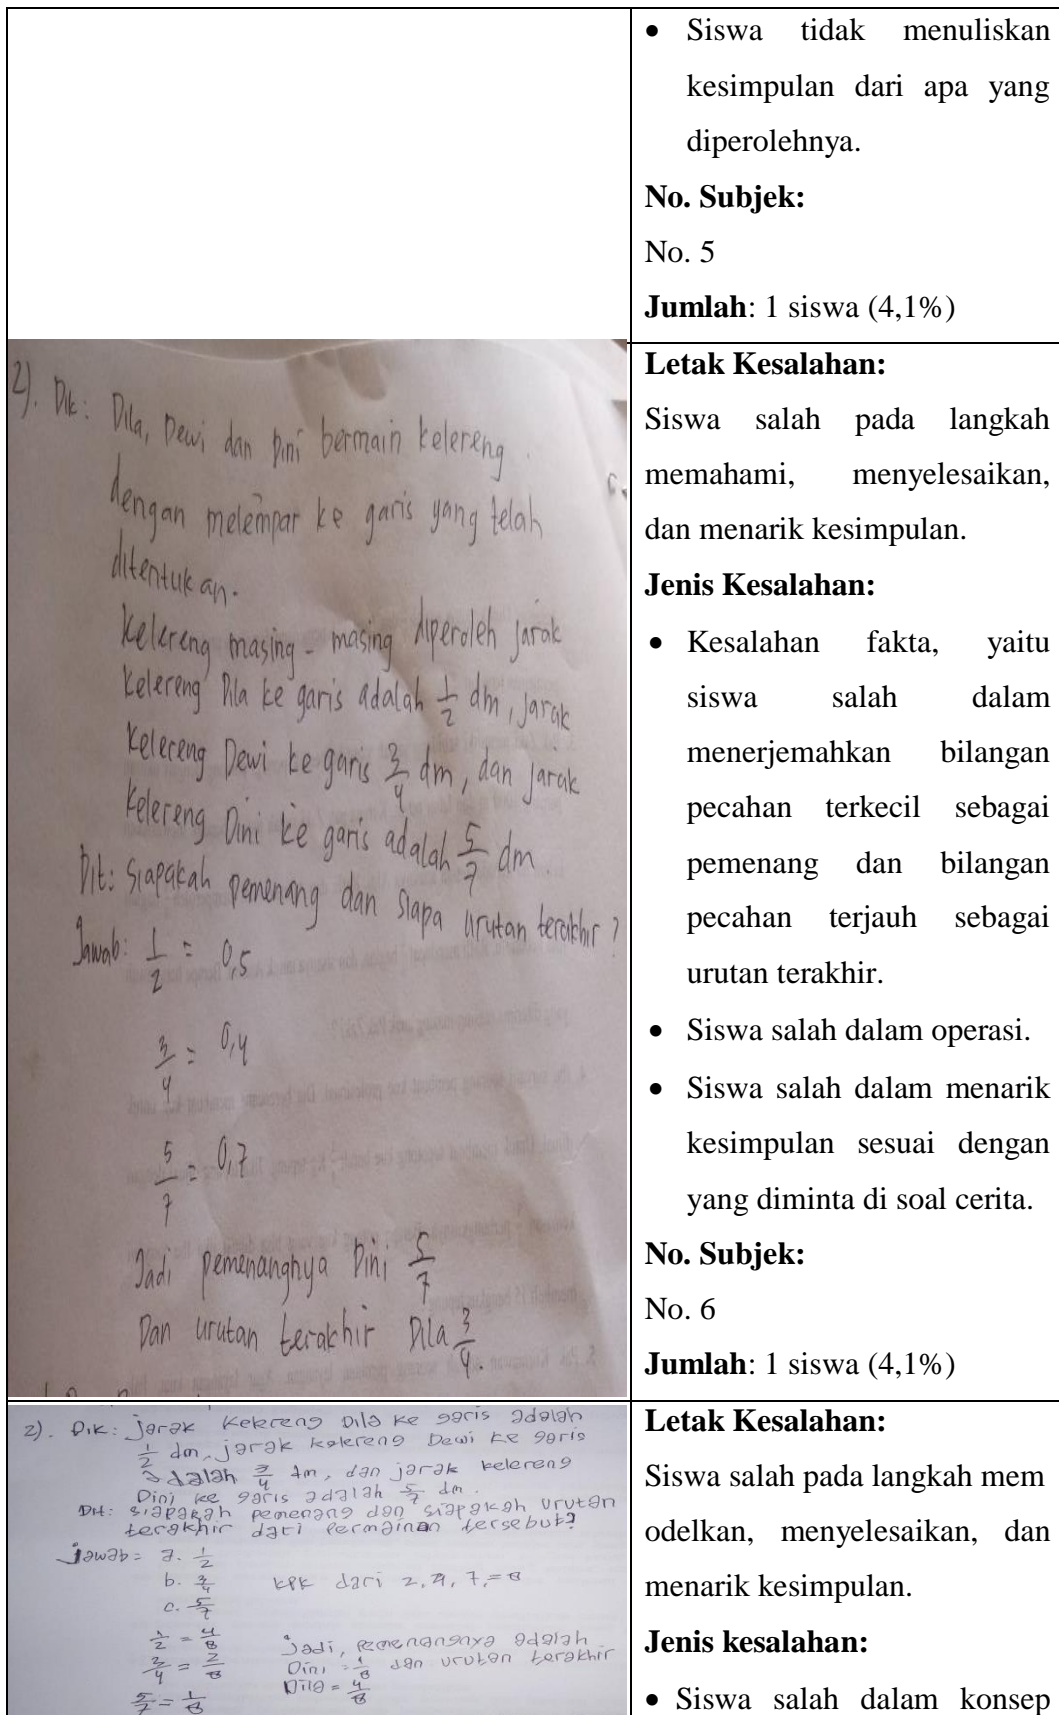 • Siswa tidak menuliskan
kesimpulan dari apa yang
diperolehnya.
No. Subjek:
No. 5
Jumlah: 1 siswa (4,1%)
2). Dik: Dila, Dewi dan Dini bermain kelereng.
dengan melempar ke garis yang telah
ditentukan.
Kelereng masing - masing diperoleh jarak
kelereng Dila ke garis adalah 1/2 dm, jarak
kelereng Dewi ke garis 3/4 dm, dan jarak
kelereng Dini ke garis adalah 5/7 dm.
Dit: Siapakah pemenang dan siapa urutan terakhir?
Jawab: 1/2 = 0,5
3/4 = 0,4
5/7 = 0,7
Jadi pemenangnya Dini 5/7
Dan urutan terakhir Dila 3/4.
Letak Kesalahan:
Siswa salah pada langkah
memahami, menyelesaikan,
dan menarik kesimpulan.
Jenis Kesalahan:
• Kesalahan fakta, yaitu
siswa salah dalam
menerjemahkan bilangan
pecahan terkecil sebagai
pemenang dan bilangan
pecahan terjauh sebagai
urutan terakhir.
• Siswa salah dalam operasi.
• Siswa salah dalam menarik
kesimpulan sesuai dengan
yang diminta di soal cerita.
No. Subjek:
No. 6
Jumlah: 1 siswa (4,1%)
2). Dik: jarak kelereng Dila ke garis adalah
1/2 dm, jarak kelereng Dewi ke garis
adalah 3/4 dm, dan jarak kelereng
Dini ke garis adalah 5/7 dm.
Dit: siapakah pemenang dan siapakah urutan
terakhir dari permainan tersebut?
jawab = a. 1/2
b. 3/4 KPK dari 2, 4, 7, = 8
c. 5/7
1/2 = 4/8
3/4 = 2/8
5/7 = 1/8
Jadi, pemenangnya adalah
Dini = 1/8 dan urutan terakhir
Dila = 4/8
Letak Kesalahan:
Siswa salah pada langkah mem
odelkan, menyelesaikan, dan
menarik kesimpulan.
Jenis kesalahan:
• Siswa salah dalam konsep